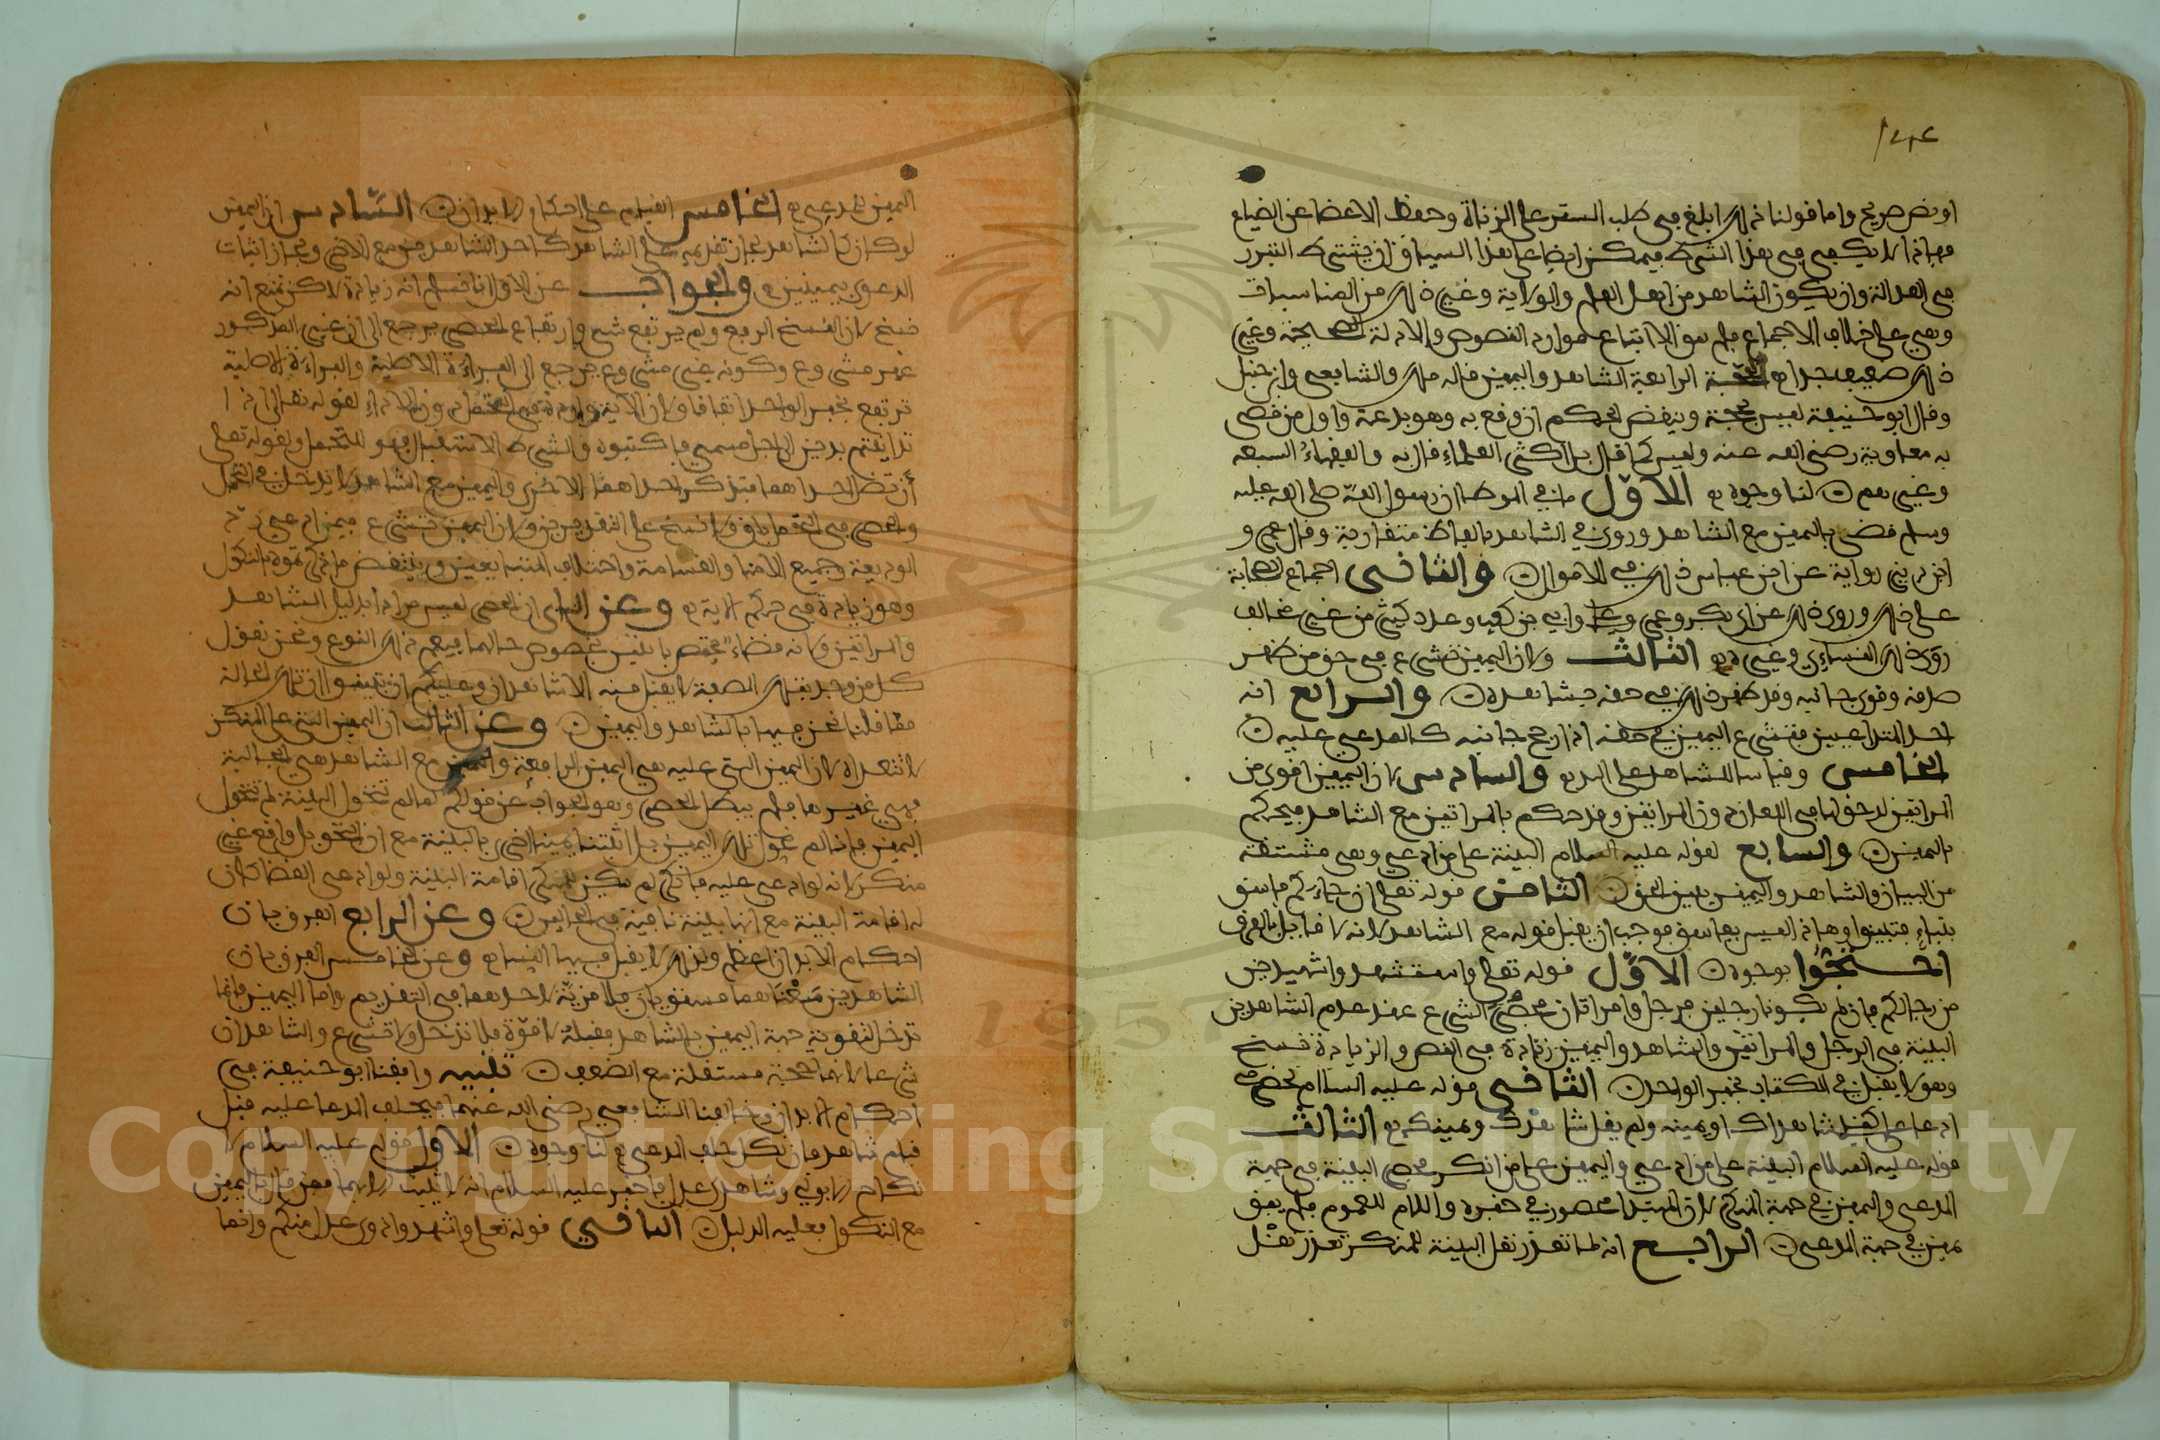 او نص صريح واما قولنا ذلك ابلغ في طلب الستر على الزناة وحفظ الاعضا عن الضياع
فهاذا لا يكفي في هذا الشرط فيمكن ايضا على هذا السياق ان يشترط التبرز
في العدالة وان يكون الشاهد من اهل العلم والولاية وغير ذلك من المناسبات
وهي على خلاف الاجماع فلم يبق الا اتباع موارد النصوص والادلة الصحيحة وغير
ذلك صعيب جدا الحجة الرابعة الشاهد واليمين قاله ملك والشافعي وابن حنبل
وقال ابو حنيفة ليس بحجة وينقض الحكم ان وقع به وهو بدعة واول من قضى
به معاوية رضي الله عنه وليس كما قال بل اكثر العلماء قال به والفقهاء السبعة
وغيرهم لنا وجوه الاول ما في الموطا ان رسول الله صلى الله عليه
وسلم قضى باليمين مع الشاهد وروي في الشاهد بالفاظ متقاربة وقال عمرو
ابن دينر رواية عن ابن عباس ذلك في الاموال والثاني اجماع الصحابة
على ذلك وروي ذلك عن ابي بكر وعمر وعلي وابي بن كعب وعدد كثير من غير مخالف
روى ذلك النساءي وغيره الثالث ولان اليمين تشرع في حق من ظهر
صدقه وقوي جانبه وقد ظهر ذلك في حقه بشاهده والرابع انه
احد المتداعيين فتشرع اليمين في حقه اذا رجح جانبه كالمدعى عليه
الخامس وقياسا للشاهد على اليد والسادس لان اليمين اقوى من
المراتين لدخولها في اللعان دون المراتين وقد حكم بالمراتين مع الشاهد فيحكم
باليمين والسابع لقوله عليه السلام البينة على من ادعى وهي مشتقة
من البيان والشاهد واليمين يبين الحق الثامن قوله تعالى ان جاءكم فاسق
بنباء فتبينوا وهاذا ليس بفاسق فوجب ان يقبل قوله مع الشاهد لانه لا قايل بالفرق
احتجوا بوجوه الاول قوله تعالى واستشهدوا شهيدين
من رجالكم فان لم يكونا رجلين فرجل وامراتان فحصر الشرع عند عدم الشاهدين
البينة في الرجل والمراتين والشاهد واليمين زيادة في النص والزيادة نسخ
وهو لا يقبل في الكتاب بخبر الواحد الثاني قوله عليه السلام لحضرمي
ادعا على كندي شاهداك او يمينه ولم يقل شاهدك ويمينك الثالث
قوله عليه السلام البينة على من ادعى واليمين على من انكر فحصر البينة في جهة
المدعي واليمين في جهة المنكر لان المبتدا محصور في خبره واللام للعموم فلم يبق
يمين في جهة المدعي الرابع انه لما تعذر نقل البينة للمنكر تعذر نقل
اليمين للمدعي الخامس القياس على احكام الابدان السادس ان اليمين
لو كان كالشاهد لجاز تقديمه على الشاهد كاحد الشاهدين مع الاخر ولجاز اثبات
الدعوى بيمينين والجواب عن الاول انا نسلم انه زيادة لاكن نمنع انه
نسخ لان النسخ الرفع ولم يرتفع شيء وارتفاع الحصر يرجع الى ان غير المذكور
غير مشروع وكونه غير مشروع يرجع الى البراءة الاصلية والبراءة الاصلية
ترتفع بخبر الواحد اتفاقا ولان الاية واردة في التحمل دون الاداء لقوله تعالى اذا
تداينتم بدين الى اجل مسمى فاكتبوه والشرط الاستقبال فهو للتحمل ولقوله تعالى
ان تضل احداهما فتذكر احداهما الاخرى واليمين مع الشاهد لا يدخل في التحمل
والحصر في التحمل باق ولا نسخ على التقديرين ولان اليمين تشرع فيمن ادعي رد
الوديعة وجميع الامنا والقسامة واختلاف المتبايعين وينتقض ما ذكرتموه بالنكول
وهو زيادة في حكم الاية وعن الثاني ان الحصر ليس مرادا بدليل الشاهد
والمراتين ولانه قضاء يختص باثنين لخصوص حالهما فيعم ذلك النوع ونحن نقول
كل من وجد بتلك الصفة لا يقبل منه الا شاهدان وعليكم ان تبينوا ان تلك الحالة
مما قلنا نحن فيها بالشاهد واليمين وعن الثالث ان اليمين التي على المنكر
لا تتعداه لان اليمين التي عليه هي اليمين الرافعة واليمين مع الشاهد هي الجالبة
فهي غيرها فلم يبطل الحصر وهو الجواب عن قولكم لما لم تتحول البينة لم تتحول
اليمين فانا لم نحول تلك اليمين بل اثبتنا يمينا اخرى بالبينة مع ان التحويل واقع غير
منكر لانه لو ادعى عليه فانكر لم يكن للمنكر اقامة البينة ولو ادعى القضا كان
له اقامة البينة مع انها بينة ثابتة في الحالين وعن الرابع الفرق بان
احكام الابدان اعظم ولذلك لا يقبل فيها النساء وعن الخامس الفرق بان
الشاهدين معناهما مستويان فلا مزية لاحدهما في التقديم واما اليمين فانما
تدخل لتقوية جهة اليمين بالشاهد فقبله لا قوة فلا تدخل ولا تشرع والشاهدان
شرعا لانهما حجة مستقلة مع الضعف تنبيه وافقنا ابو حنيفة في
احكام الابدان وخالفنا الشافعي رضي الله عنهما فيحلف المدعا عليه قبل
قيام شاهد فان نكل حلف المدعي لنا وجوه الاول قوله عليه السلام لا
نكاح الا بولي وشاهدي عدل فاخبر عليه السلام انه لا يثبت الا بهما فمن قال باليمين
مع النكول فعليه الدليل الثاني قوله تعالى واشهدوا ذوي عدل منكم وانما
Copyright © King Saud University
1957